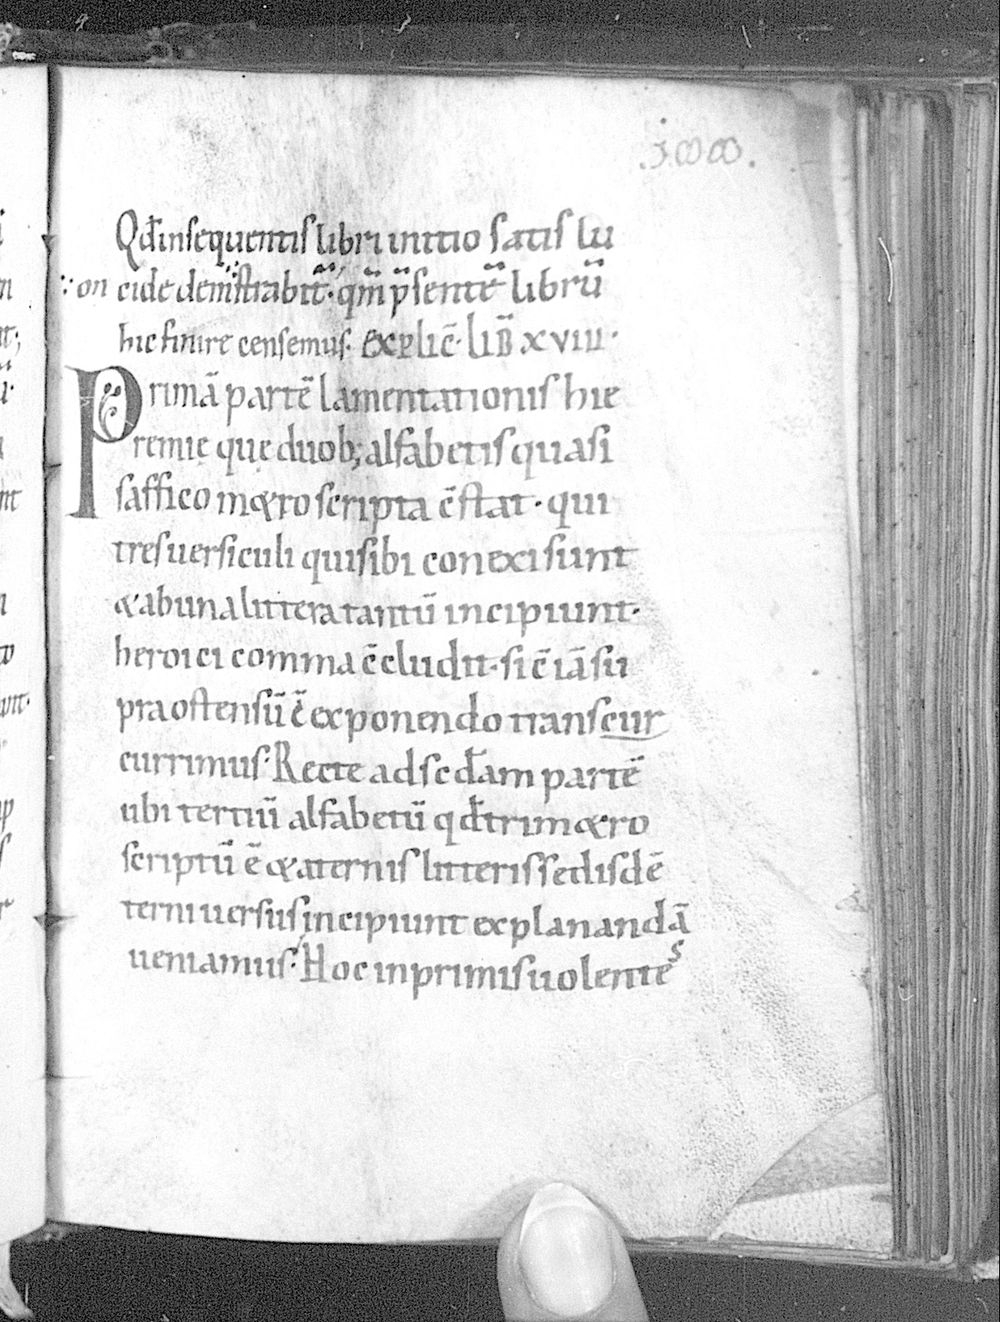 Qđ insequentis libri initio satis lu
on cide dem̅strabit̅ · qm̅ p̅sente̅ libru̅
hic finire censemus · explic̅ · lib̅ xviii ·
Prima̅ parte̅ lamentationis hie
remię quę duob; alfabetis quasi
saffico m&ro scripta c̅stat · qui
tres uersiculi qui sibi conexi sunt
& ab una littera tantu̅ incipiunt ·
heroici comma c̅cludit · sic̅ ia̅ su
pra ostensu̅ e̅ exponendo transcur
currimus · Recte ad scđam parte̅
ubi tertiu̅ alfabetu̅ qđ trim&ro
scriptu̅ e̅ & a ternis litteris sed isde̅
terni uersus incipiunt explananda̅
ueniamus · Hoc inprimis uolentes